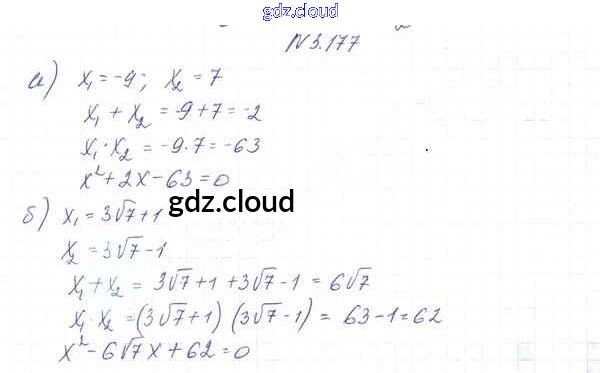 gdz.cloud
N 3.177
а) x₁ = -9; x₂ = 7
x₁ + x₂ = -9+7 = -2
x₁·x₂ = -9·7 = -63
x² + 2x - 63 = 0
б) x₁ = 3√7+1
gdz.cloud
x₂ = 3√7-1
x₁ + x₂ = 3√7+1 + 3√7-1 = 6√7
x₁·x₂ = (3√7+1) (3√7-1) = 63-1=62
x² - 6√7x + 62 = 0